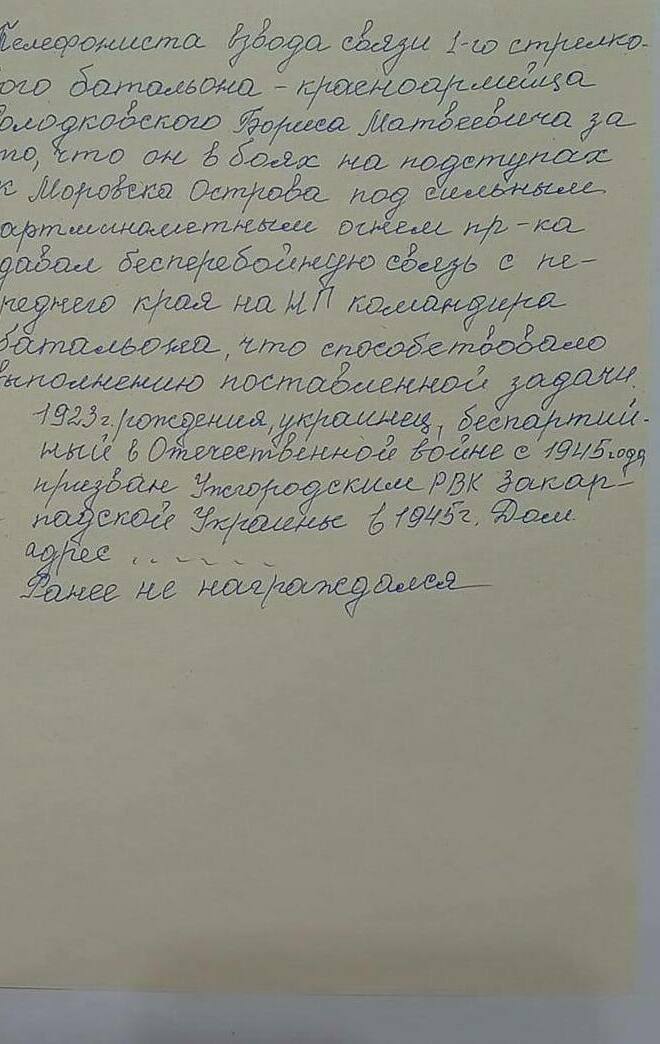 Телефониста взвода связи 1-го стрелко-
ого батальона - красноармейца
олодковского Бориса Матвеевича за
то, что он в боях на подступах
к Моровска Острова под сильным
артминометным огнем пр-ка
давал бесперебойную связь с пе-
реднего края на НП командира
батальона, что способствовало
выполнению поставленной задачи.
1923 г. рождения, украинец, беспартий-
ный в Отечественной войне с 1945 года
призван Ужгородским РВК Закар-
падской Украины в 1945 г. Дом.
адрес .. - - - - -
Ранее не награждался